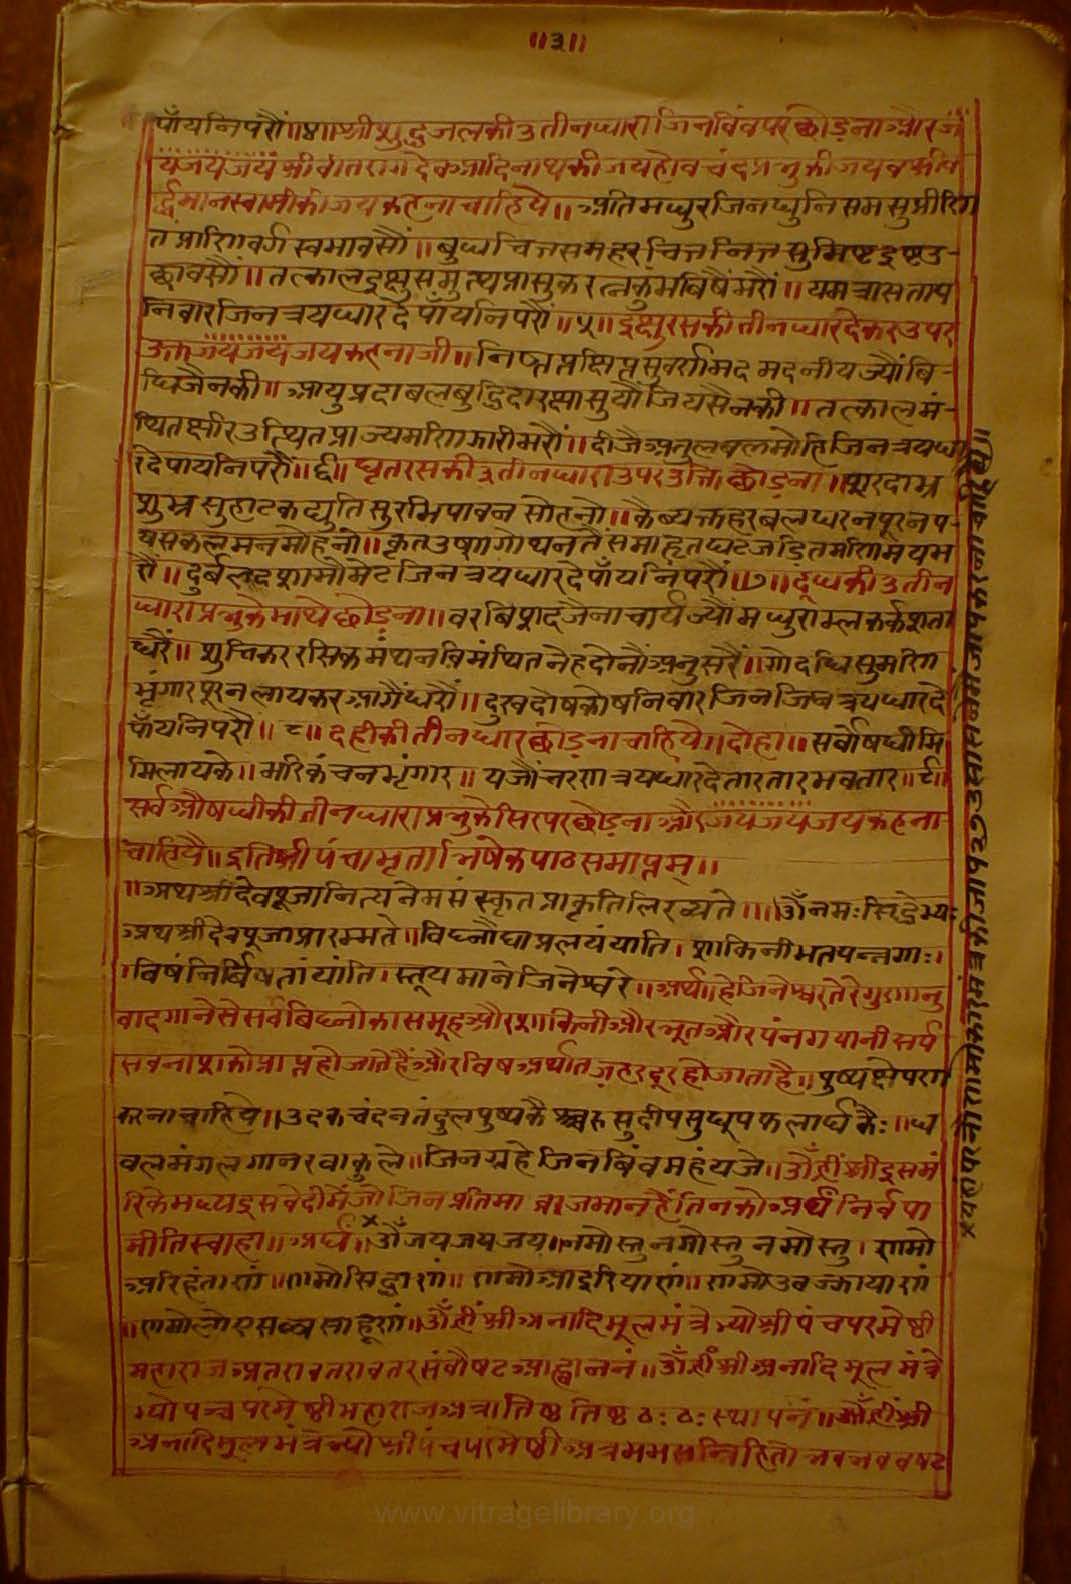 ॥३॥
पाँयनिपरौं॥४॥श्रीशुद्धजलकी३तीनधाराजिनबिंबपरछोड़नाऔरज
यजयजयंश्रीवीतरागदेवआदिनाथकीजयहोवचंदप्रभुकीजयवश्रीव
र्द्धमानस्वामीकीजयकहनाचाहिये॥अतिमधुरजिनधुनिसमसुप्रीणि
तप्राणिवर्गस्वभावसौं॥बुधचित्तसमहरचित्तनित्तसुमिष्टइष्टउ-
छावसौं॥तत्कालइक्षुसमुत्थप्रासुकरत्नकुंभविषैंभरौं॥यमत्रासताप
निवारजिनत्रयधारदेपाँयनिपरौं॥५॥इक्षुरसकीतीनधारदेकरउपर
उक्तजयजयजयकहनाजी॥निष्टप्तक्षिप्तसुवर्णमदमदनीयज्यौंबि-
धिजैनकी॥आयुप्रदाबलबुद्धिदारक्षासुयौंजियसैनकी॥तत्कालमं-
थितक्षीरउत्थितप्राज्यमणिझारीभरौं॥दीजैअतुलबलमोहिजिनत्रयधा
रदेपायनिपरौं॥६॥घृतरसकी३तीनधाराउपरउक्तिछोड़ना॥शरदाभ्र
शुभ्रसुहाटकद्युतिसुरभिपावनसोहनो॥कैब्यक्तहरबलधरनपूरनप-
यसकलमनमोहनो॥कृतउष्णगोथनतैंसमाहृतघटजड़ितमणिमयभ
रौं॥दुर्बलदशामोमेटजिनत्रयधारदेपाँयनिपरौं॥७॥दूधकी३तीन
धाराप्रभुकेमाथेछोड़ना॥वरबिशदजैनाचार्यज्यौंमधुराम्लकर्कशता
धरैं॥शुचिकररसिकमंथनबिमंथितनेहदोनौंअनुसरैं॥गोदधिसुमणि
भृंगारपूरनलायकरआगैंधरौं॥दुखदोषकोषनिवारजिनजिनत्रयधारदे
पाँयनिपरौं॥८॥दहीकीतीनधारछोड़नाचाहिये॥दोहा॥सर्वौषधीमि
मिलायके॥भरिकंचनभृंगार॥यजौंचरणत्रयधारदेतारतारभवतार॥९॥
सर्वऔषधीकीतीनधाराप्रभुकेसिरपरछोड़नाऔरजयजयजयकहना
चाहिये॥इतिश्रीपंचामृताभिषेकपाठसमाप्तम्॥
॥अथश्रीदेवपूजानित्यनेमसंस्कृतप्राकृतिलिख्यते॥॥ॐनमःसिद्धेभ्यः
अथश्रीदेवपूजाप्रारम्भते॥विघ्नौघाप्रलयंयांति।शाकिनीभूतपन्नगाः।
।बिषंनिर्बिषतांयांति।स्तूयमानेजिनेश्वरे॥अर्थ॥हेजिनेश्वरतेरेगुणानु
वादगानेसेसर्वबिघ्नोकासमूहऔरशाकिनीऔरभूतऔरपंनगयानीसर्प
सबनाशकोप्राप्तहोजातेहैंऔरविषअर्थातज़हरदूरहोजाताहै॥पुष्पक्षेपण
करनाचाहिये॥उदकचंदनतंदुलपुष्पकैश्चरुसुदीपसुधूपफलार्घकैः॥ध
वलमंगलगानरवाकुले॥जिनगृहेजिनबिंबमहंयजे॥ॐह्रींश्रीइसमं
दिरकेमध्यइसवेदीमेंजोजिनप्रतिमाब्राजमानहैंतिनकोअर्घंनिर्वपा
मीतिस्वाहा॥अर्घं॥×ॐजयजयजय।नमोस्तुनमोस्तुनमोस्तु।णमो
अरिहंताणं॥णमोसिद्धाणं॥णमोआइरियाणं॥णमोउवज्झायाणं
॥णमोलोएसव्वसाहूणं॥ॐह्रींश्रीअनादिमूलमंत्रेभ्योश्रीपंचपरमेष्ठी
महाराजअत्रावतरावतरसंवौषटआह्वाननं॥ॐह्रींश्रीअनादिमूलमंत्रे
भ्योपञ्चपरमेष्ठीमहाराजअत्रातिष्ठतिष्ठठःठःस्थापनं॥ॐह्रींश्री
अनादिमूलमंत्रेभ्योश्रीपंचपरमेष्ठीअत्रममसन्निहितोभवभववषट
www.vitragelibrary.org